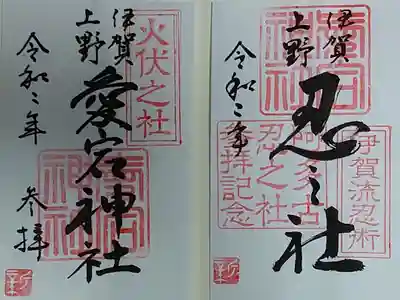 伊賀
上野
忍之社
令和二年
伊賀流忍術
忍之社
参拝記念
火伏之社
伊賀
上野
愛宕神社
令和二年
参拝